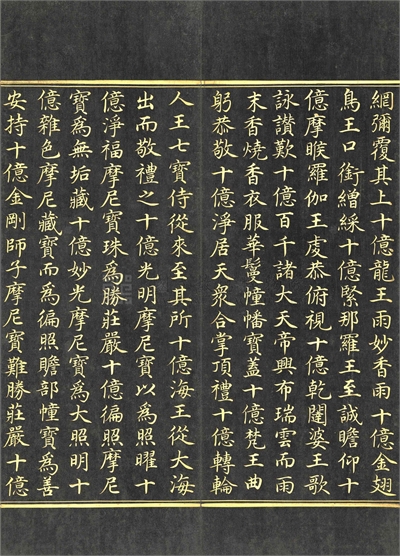 網彌覆其上十億龍王雨妙香雨十億金翅
鳥王口銜繒綵十億緊那羅王至誠瞻仰十
億摩睺羅伽王虔恭俯視十億乾闥婆王歌
詠讚歎十億百千諸大天帝興布瑞雲而雨
末香燒香衣服華鬘幢幡寶蓋十億梵王曲
躬恭敬十億淨居天衆合掌頂禮十億轉輪
人王七寶侍從來至其所十億海王從大海
出而敬禮之十億光明摩尼寶以為照曜十
億淨福摩尼寶珠為勝莊嚴十億徧照摩尼
寶為無垢藏十億妙光摩尼寶為大照明十
億雜色摩尼藏寶而為徧照贍部幢寶為善
安持十億金剛師子摩尼寶難勝莊嚴十億